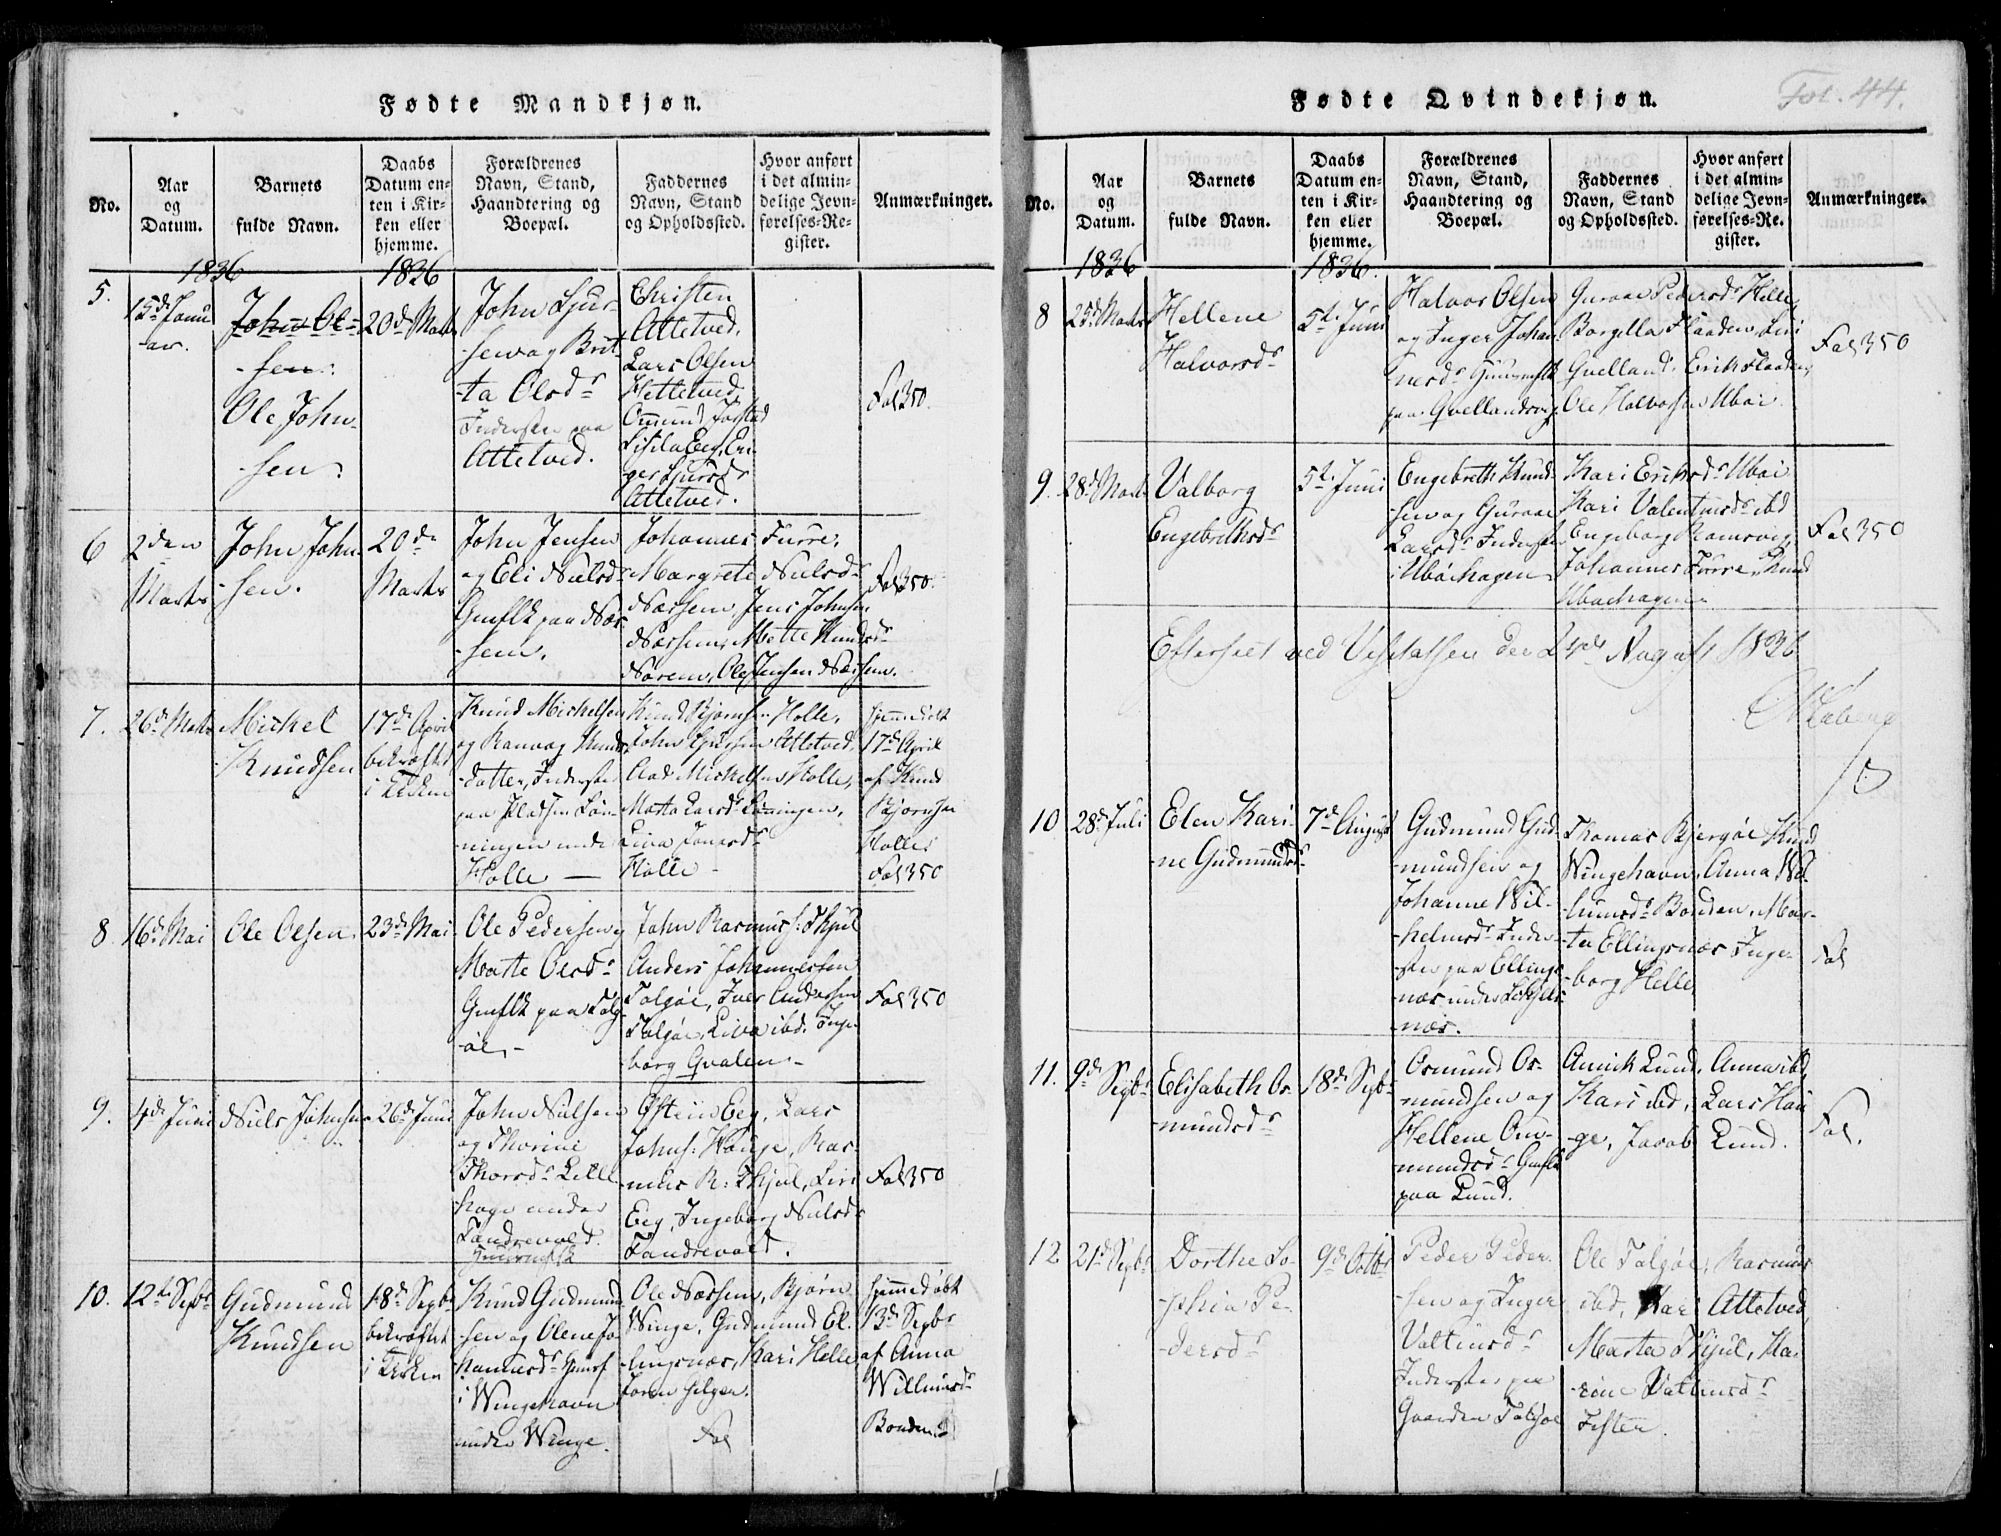 Fødte Mandkjøn.
No.
Aar
og
Datum.
Barnets
fulde Navn.
Daabs
Datum en-
ten i Kir-
ken eller
hjemme.
Forældrenes
Navn, Stand,
Haandtering og
Boepæl.
Faddernes
Navn, Stand
og Opholdssted.
Hvor anført
i det almin-
delige Jevn-
førelses-Re-
gister.
Anmærkninger.
1836
1836
5.
15de Janu
-ar.
John Ol-
-sen.
Ole John-
-sen.
20de Marts
John Sjur-
-sen og Brit-
-ta Olsdr
Inderster paa
Attetved.
Christen
Attetved,
Lars Olsen
Hettetved,
Omund
Attetved.
Fol 350.
6
2den
Marts
John John-
-sen.
20de
Marts
John Jensen
og Eli Nielsdr
Gmflk paa Næs-
-sem.
Johannes Furre,
Margrete Nielsdr
Næssem, Jens Johnsen
Næssem, Mette Knudsdr
Nørem, Ole Jensen Næssem.
Fol 350.
7.
26de Marts
Mickel
Knudsen
17de April
bekræftet
i Kirken
Knud Mickelsen
og Ranvog Knuds-
-datter, Inderster
paa Pladsen Løn-
-ningen under
Holle —
Knud Bjørnsen Holle,
John Attetved,
Aad Mickelsen Holle,
Marta Larsdr Lønningen,
Holle -
hjemmedøbt
17de April
af Knud
Bjørnsen
Holle
Fol 350
8.
16de Mai
Ole Olsen
23de Mai
Ole Pedersen og
Marte Olsdr
Gmflk paa Talg-
-øe,-
John Rasmus s: Skjul
Anders Johannessen
Talgøe, Iver Andersen
Talgøe, Liva ibd, Inge-
borg Qvalen -
Fol 350
9.
4de Juni
Niels Johnsen
26de Juni
John Nielsen
og Thorine
Thorsdr Lille
hage under
Landrevold.
Østen Eeg, Lars
Johns: Hauge, Ras-
-mus R: Skjul, Siri
Eeg, Ingeborg Nielsdr
Landrevold.
Fol 350
10.
12te Sepbr
Gudmund
Knudsen
18de Sepbr
bekræftet
i Kirken
Knud Gudmund
-sen og Olene Jo-
hannesdr
i Wingehavn
under Winge.
Ole Næssem, Bjørn
Winge, Gudmund El-
-lingsnæs, Kari Helle
Fol
hjemmedøbt
13de Sepbr
af Anna
Willumsdr
Bonden
Fødte Qvindekjøn.
Fol. 44.
No.
Aar
og
Datum.
Barnets
fulde Navn.
Daabs
Datum en-
ten i Kir-
ken eller
hjemme.
Forældrenes
Navn, Stand,
Haandtering og
Boepæl.
Faddernes
Navn, Stand
og Opholdssted.
Hvor anført
i det almin-
delige Jevn-
førelses-Re-
gister.
Anmærkninger.
1836
1836.
8
25de Marts
Hellene
Halvorsdr
5te Juni
Halvor Olsen
og Inger Johan-
nesdr
paa Qvellandsvig
Guroe Pedersdr Helle,
Borgilla Flaaden, Siri
Qvelland, Erik Flaaden,
Ole Halvorsen Uboi
Fol 350
9.
28de Marts
Valborg
Engebrethsdr
5te Juni
Engebreth Knud-
-sen og Guroe
Larsdr Inderster
i Uboihagen
Kari Eriksdr Uboi
Kari Valentinsdr ibd
Engeborg Ramsvig,
Johannes Forre, Knud
Uboehagen
Fol 350
Efterseet ved Visitatsen den 2den August 1836
10
28de Juli
Elen Kari-
ne Gudmundsdr
7de August
Gudmund Gud-
-mundsen og
Johanne Wil-
-helmsdr Inder-
-ster paa Ellings-
næs under
-næs.
Thomas Bjergøe, Knud
Wingehavn, Anna Wil-
-lumsdr Bonden, Mar-
-ta Ellingsnæs, Inge-
borg Helle
Fol
11.
9de Sepbr
Elisabeth Os-
mundsdr
18de Sepbr
Osmund Os-
mundsen og
Hellene Om-
mundsdr Gmflk
paa Lund.
Annik Lund, Anna ibd,
Kari ibd, Lars Hau
-ge, Jacob Lund.
Fol.
12
21de Sepbr
Dorthe So-
-phia Pe-
-dersdr
9de Octbr
Peder Peder-
-sen og Inger
Valtinsdr
Inderster paa
Gaarden Talgøe
Ole Talgøe, Rasmus
ibd, Kari Attetved,
Marta Skjul, Ka-
-rine Valtinsdr
Fister.